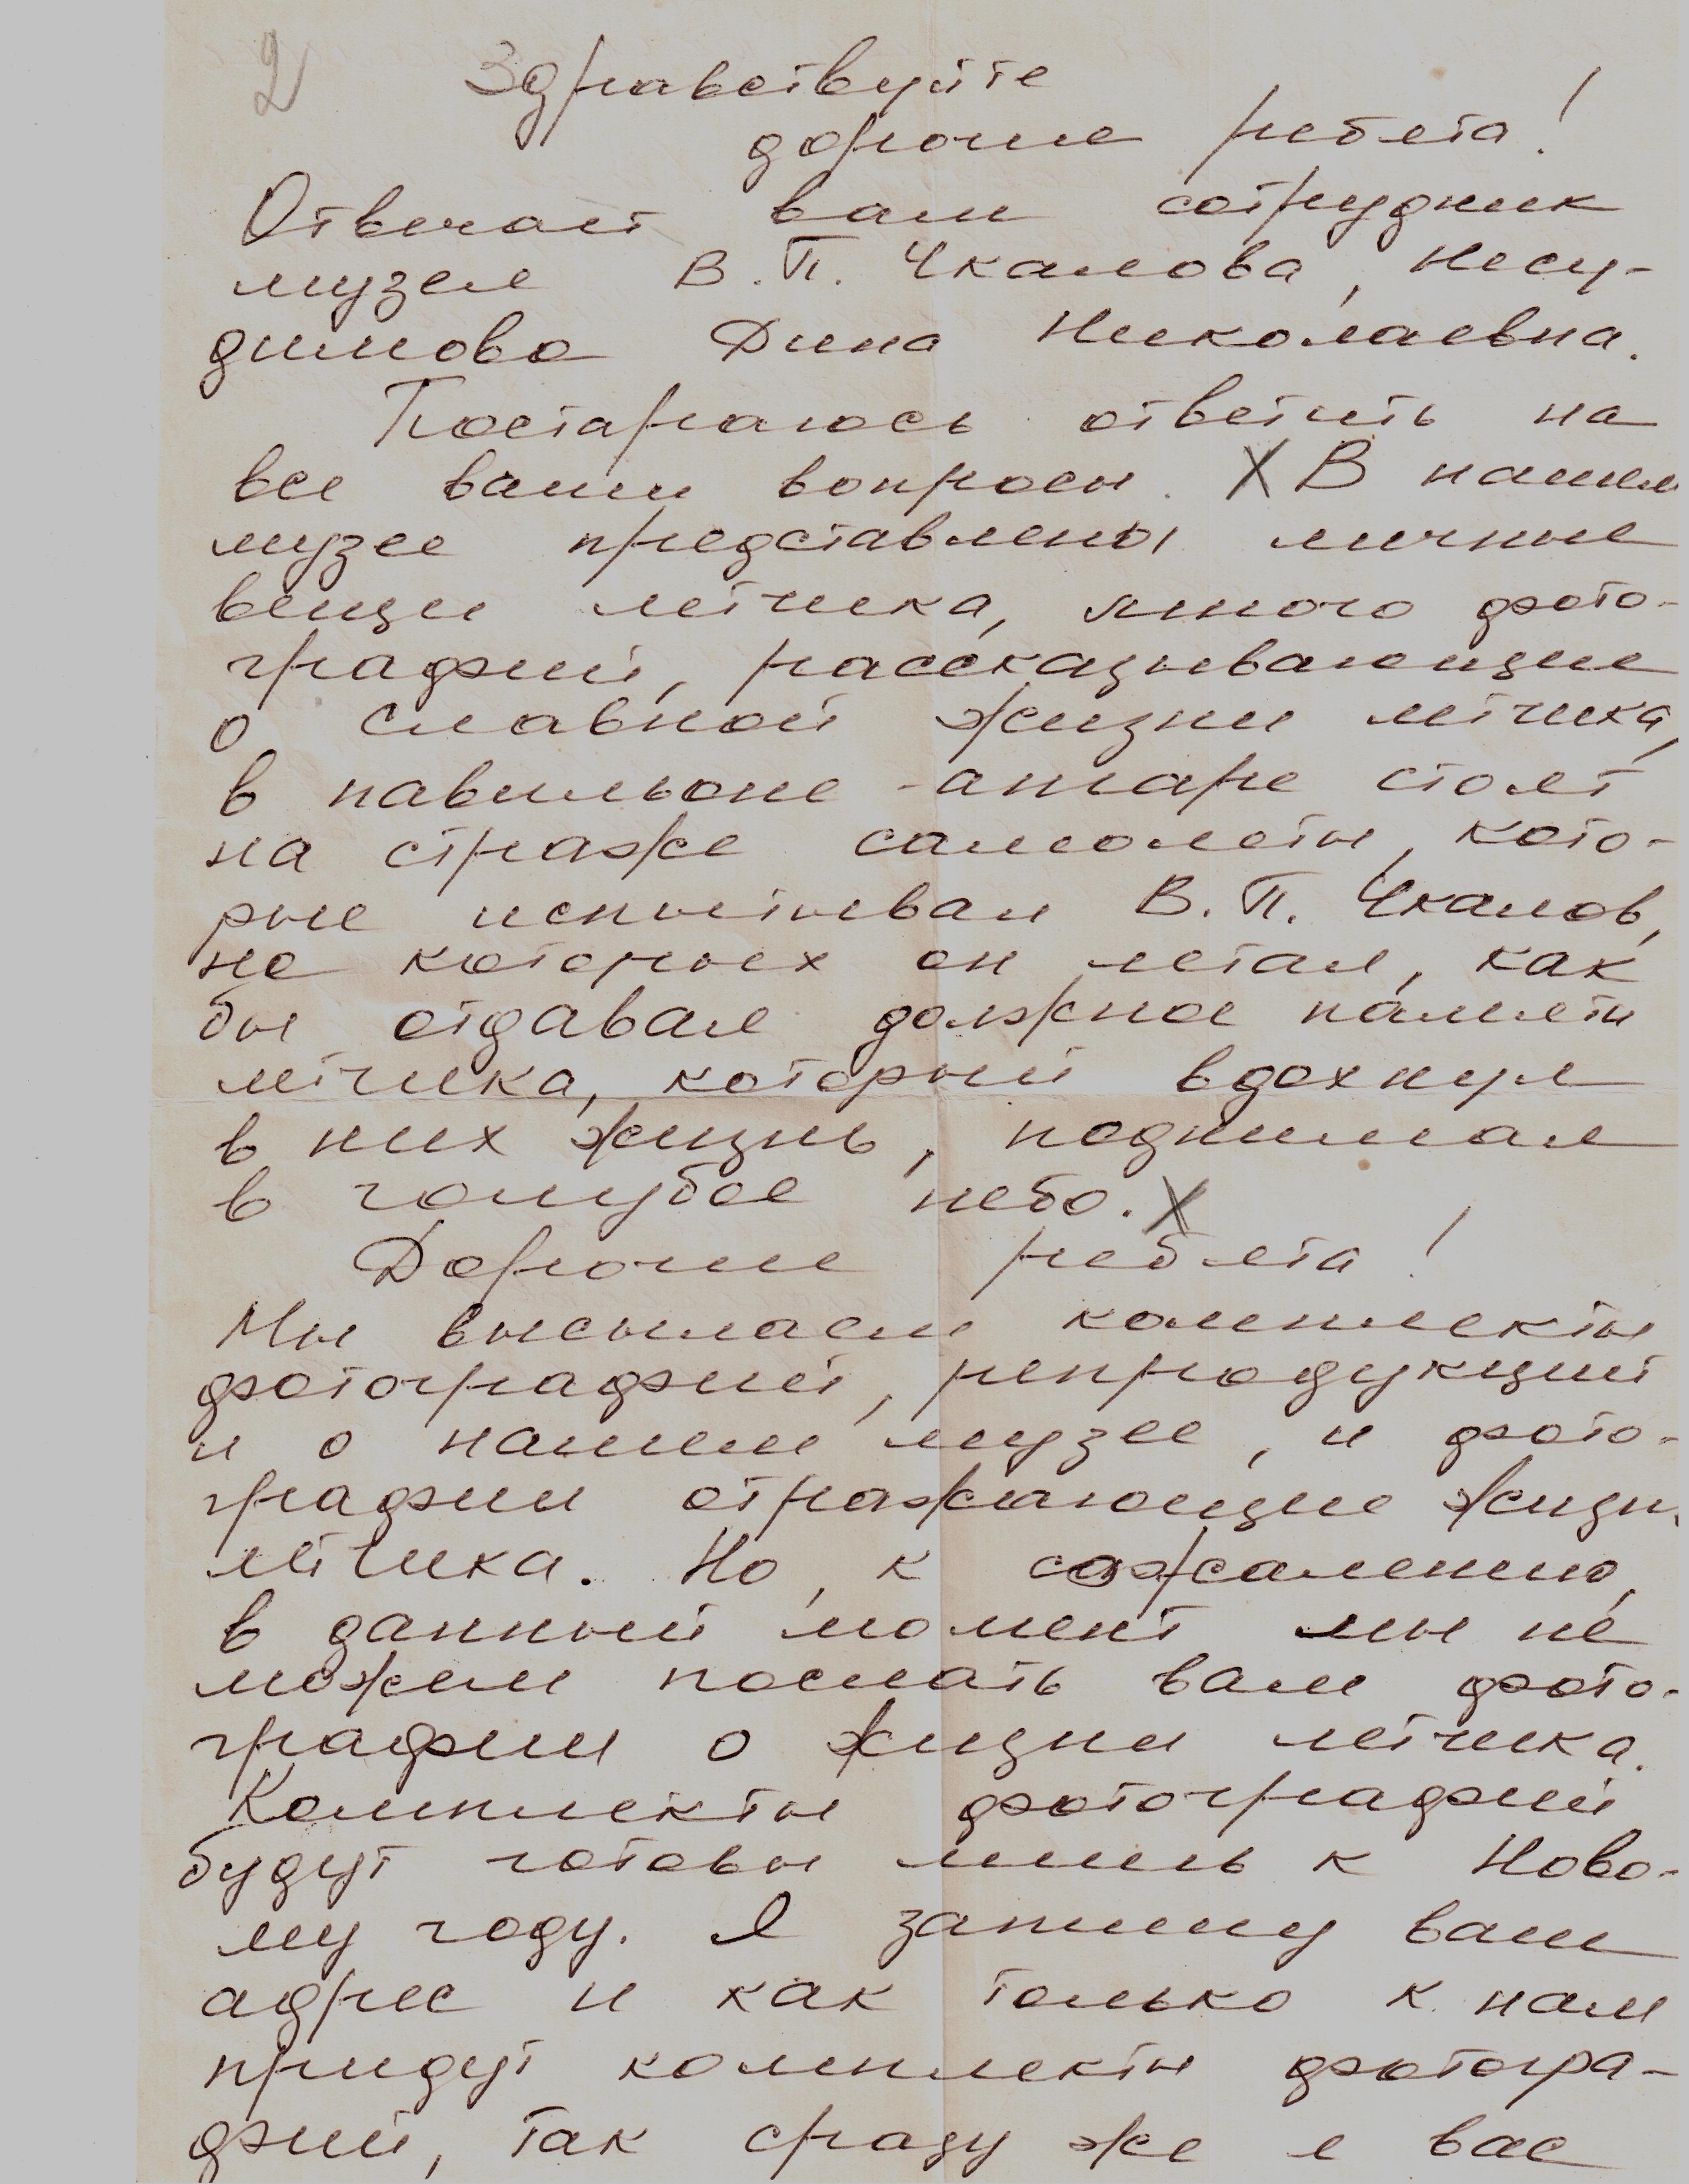 2
Здравствуйте
дорогие ребята!
Отвечает вам сотрудник
музея В.П. Чкалова, Несу-
димова Дина Николаевна.
Постараюсь ответить на
все ваши вопросы. X В нашем
музее представлены личные
вещи лётчика, много фото-
графий, рассказывающие
о славной жизни лётчика,
в павильоне-ангаре стоят
на страже самолеты, кото-
рые испытывал В.П. Чкалов,
на которых он летал, как
бы отдавая должное памяти
лётчика, который вдохнул
в них жизнь, поднимал
в голубое небо. X
Дорогие ребята!
Мы высылаем комплекты
фотографий, репродукций
и о нашем музее, и фото-
графии отражающие жизнь
лётчика. Но, к сожалению,
в данный момент мы не
можем послать вам фото-
графии о жизни летчика.
Комплекты фотографий
будут готовы лишь к Ново-
му году. Я запишу ваш
адрес и как только к нам
придут комплекты фотогра-
фий, так сразу же я вас